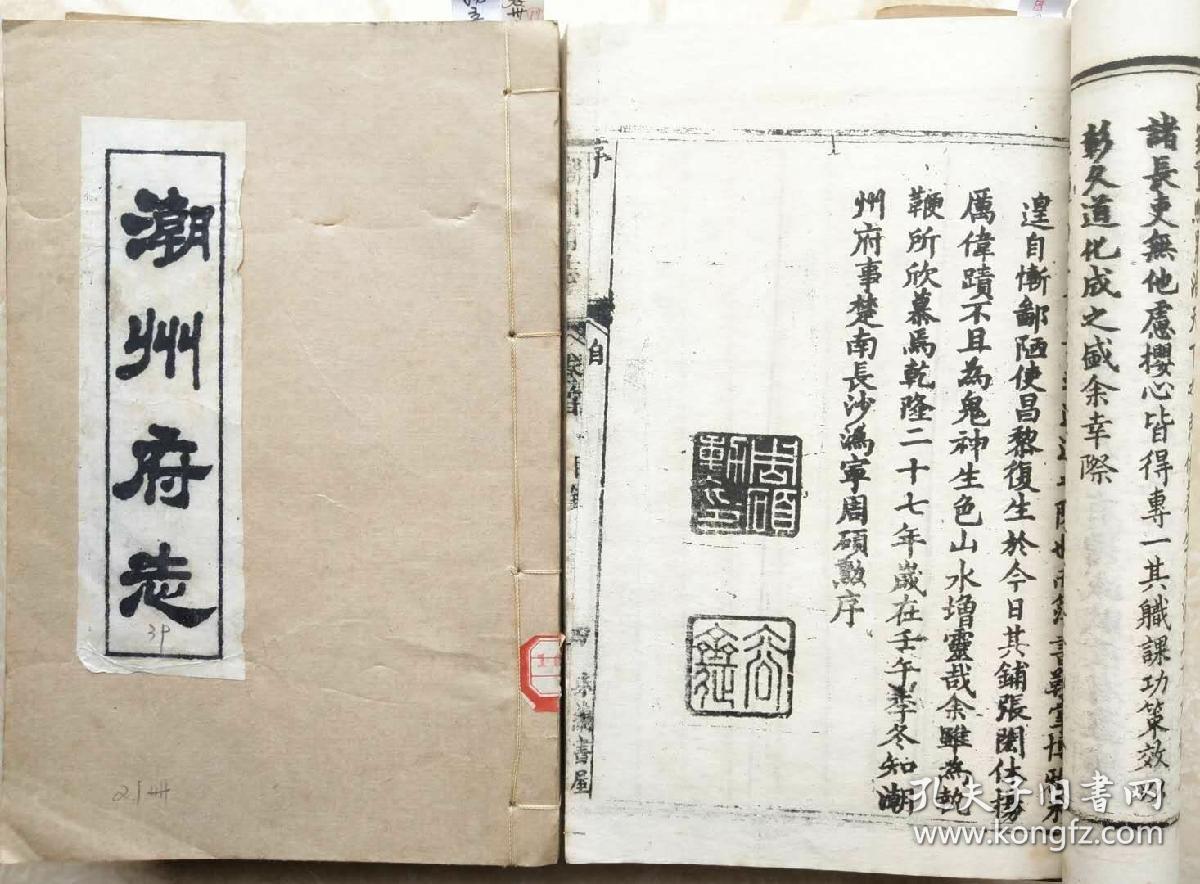 潮州府志
39
21册
諸長吏無他慮攖心皆得專一其職課功策效以
彰久道化成之盛余幸際
遑自慚鄙陋使昌黎復生於今日其鋪張閎休揚
厲偉蹟不且為鬼神生色山水增靈哉余雖為執
鞭所欣慕焉乾隆二十七年歲在壬午季冬知潮
州府事楚南長沙溈寧周碩勳序
周碩勳印
序
自
四
書屋
孔夫子旧书网
www.kongfz.com